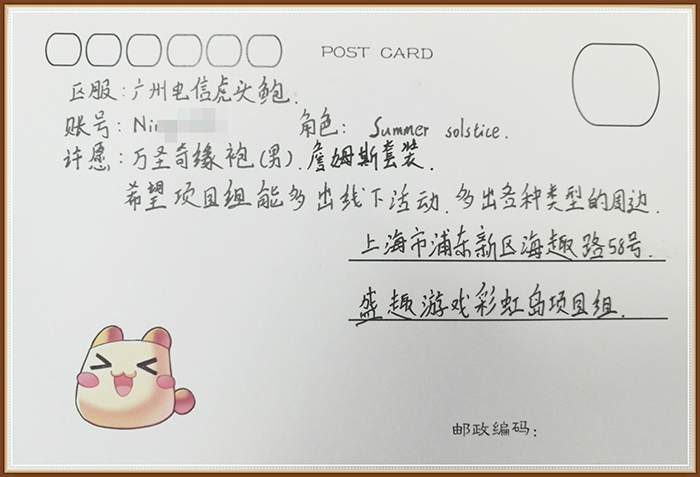 POST CARD
区服：广州电信虎头鲍.
账号：Ni
角色： Summer solstice.
许愿：万圣奇缘袍(男).詹姆斯套装.
希望项目组能多出线下活动.多出各种类型的周边.
上海市浦东新区海趣路58号.
盛趣游戏彩虹岛项目组.
邮政编码：